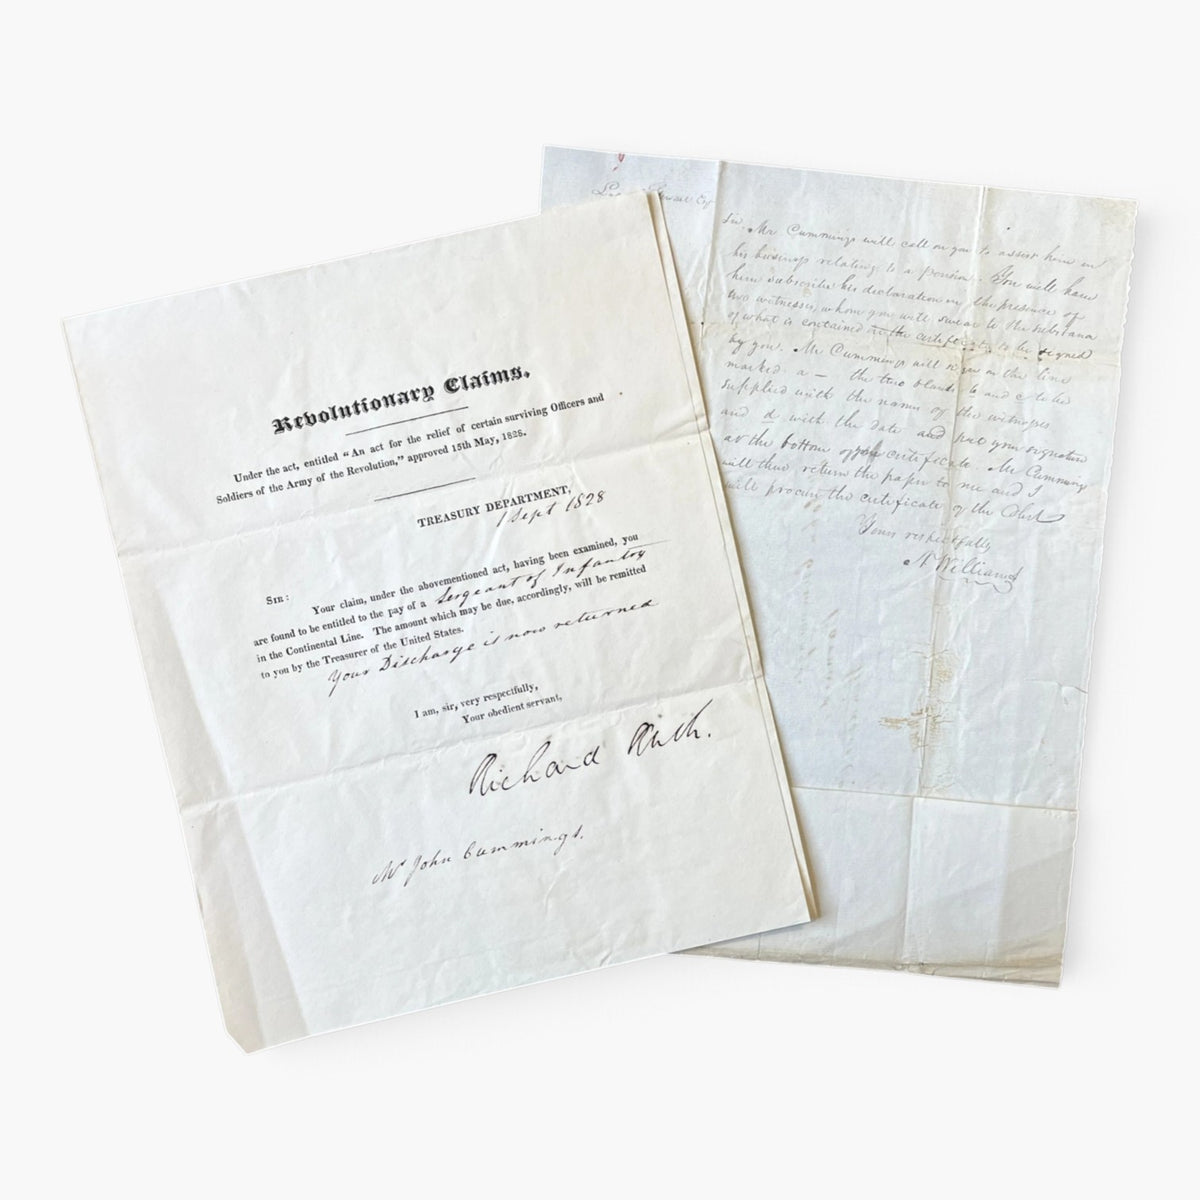 Revolutionary Claims.
Under the act, entitled "An act for the relief of certain surviving Officers and
Soldiers of the Army of the Revolution," approved 15th May, 1828.
TREASURY DEPARTMENT,
1 Sept 1828
SIR:
Your claim, under the abovementioned act, having been examined, you
are found to be entitled to the pay of a Sergeant of Infantry
in the Continental Line. The amount which may be due, accordingly, will be remitted
to you by the Treasurer of the United States.
Your Discharge is now returned
I am, sir, very respectfully,
Your obedient servant,
Richard Rush.
Mr John Cummings.
Esq
Sir. Mr Cummings will call on you to assist him in
his business relating to a pension. You will have
him subscribe his declaration in the presence of
two witnesses, whom you will swear to the substance
of what is contained in the certificate to be signed
by you. Mr Cummings will sign on the line
marked a — the two blanks b and c to be
supplied with the names of the witnesses
and d with the date and put your signature
at the bottom of your certificate. Mr Cummings
will then return the paper to me and I
will procure the certificate of the Clerk
Yours respectfully
Williams